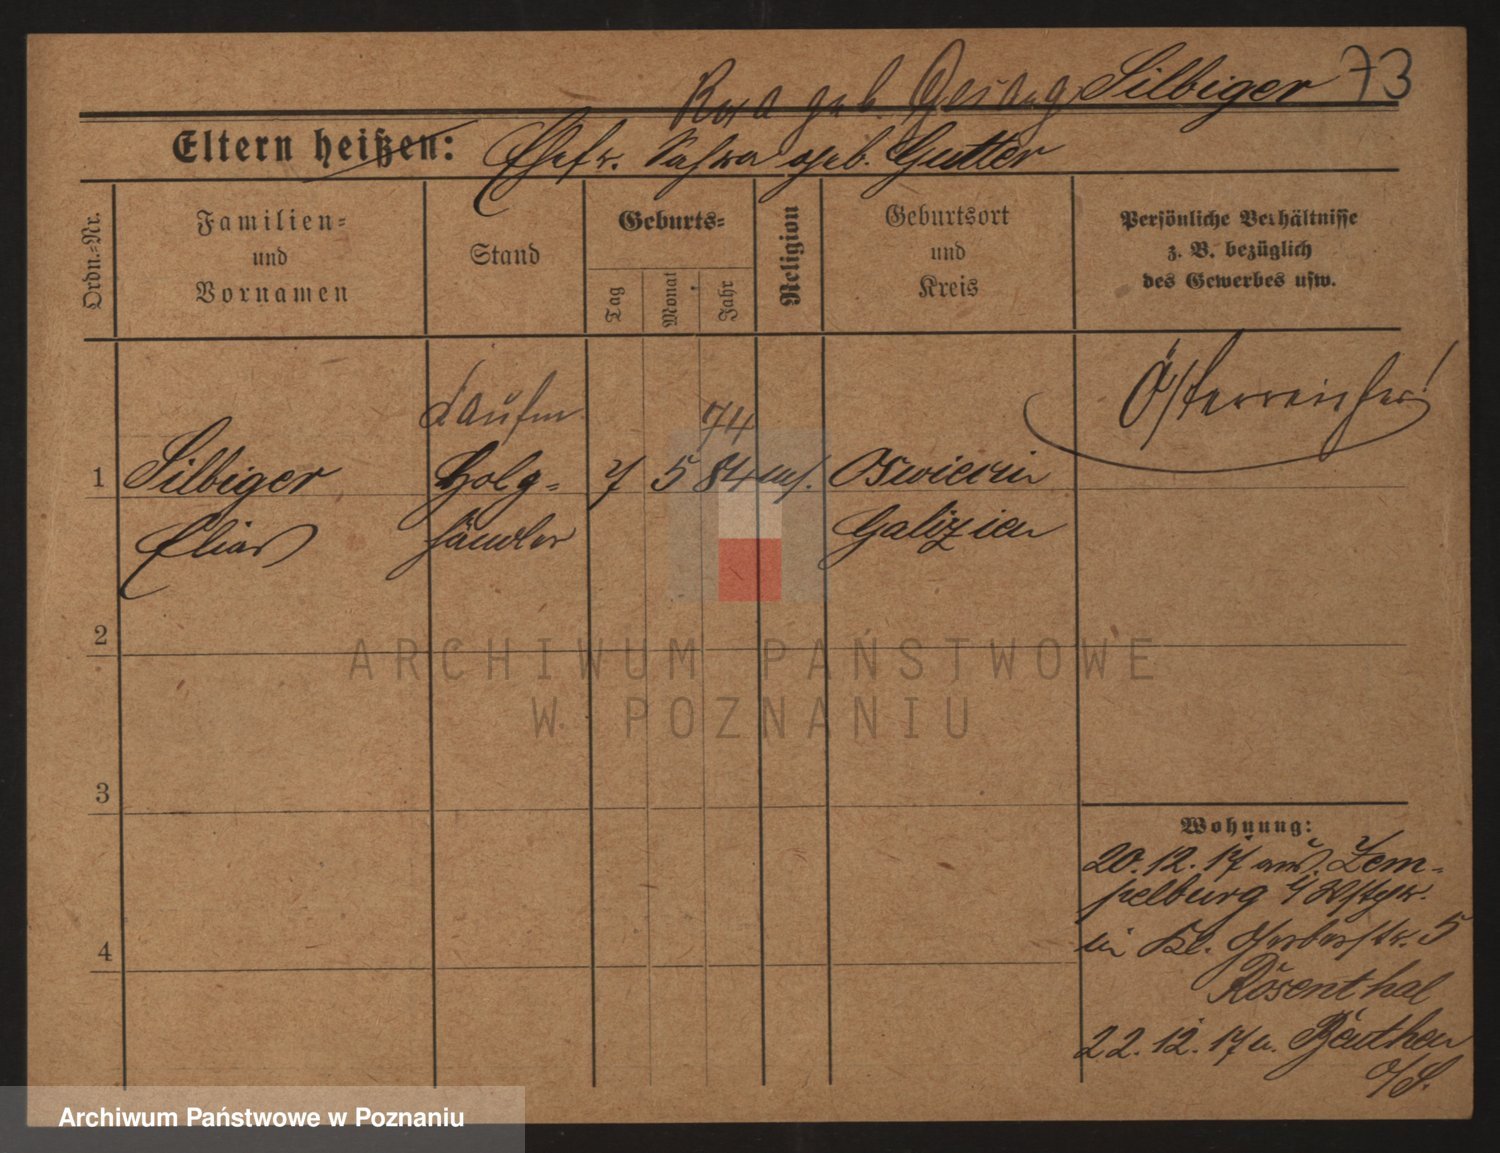 Rosa geb. Gesang Silbiger 73
Eltern heißen: Ehefr. geb. Gutter
Ordn.-Nr.
Familien-
und
Vornamen
Stand
Geburts-
Tag
Monat
Jahr
Religion
Geburtsort
und
Kreis
Persönliche Verhältnisse
z. B. bezüglich
des Gewerbes usw.
Kaufm
74
Österreicher!
1 Silbiger Holz- 7 5 84 mos. Oswiecim
Elias händler Galizien
2
3
4
Wohnung:
20.12.17 aus Zem-
pelburg
in Kl. Gerberstr. 5
Rosenthal
22.12.17 n. Beuthen
O/S.
ARCHIWUM PAŃSTWOWE
W POZNANIU
Archiwum Państwowe w Poznaniu